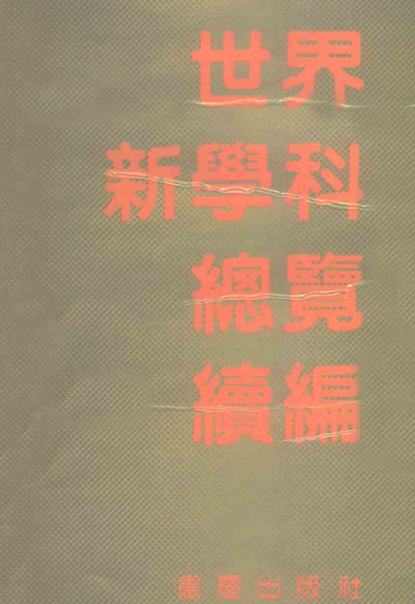 世界
新學科
總覽
續編
重慶出版社